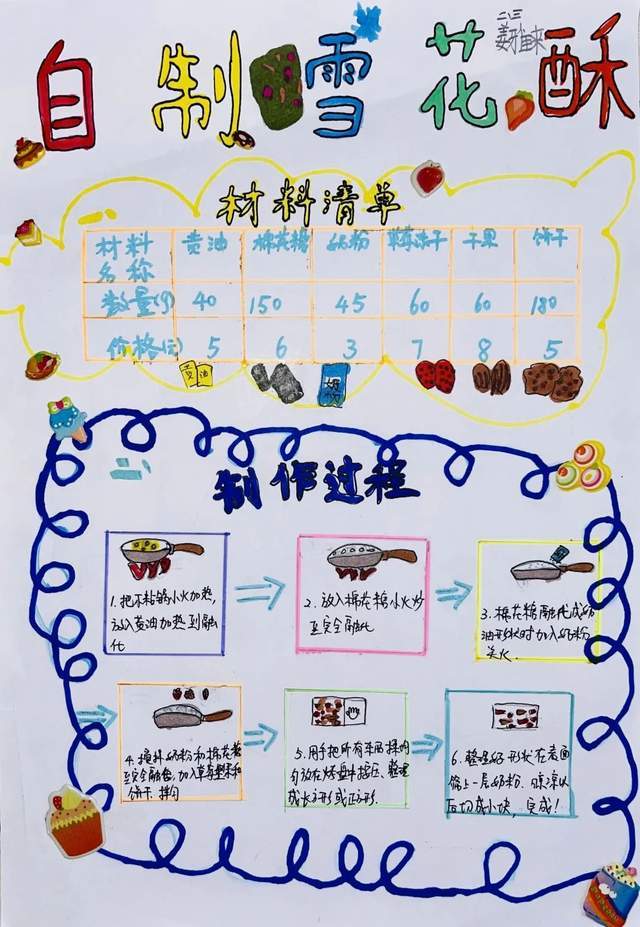 二三
姜雅来
自制雪花酥
材料清单
材料名称 黄油 棉花糖 奶粉 草莓冻干 干果 饼干
数量(g) 40 150 45 60 60 180
价格(元) 5 6 3 7 8 5
黄油
奶粉
制作过程
1. 把不粘锅小火加热,
放入黄油加热到融
化
2. 放入棉花糖小火炒
至完全融化
3. 棉花糖融化成奶
油形状时加入奶粉
关火
4. 搅拌奶粉和棉花糖
至完全融合,加入草莓
饼干 拌匀
5. 用手把所有
匀放在烤盘中按压,整理
成长方形或正方形.
6. 整理 形状在表面
撒上一层奶粉. 晾凉以
后切成小块, 完成!